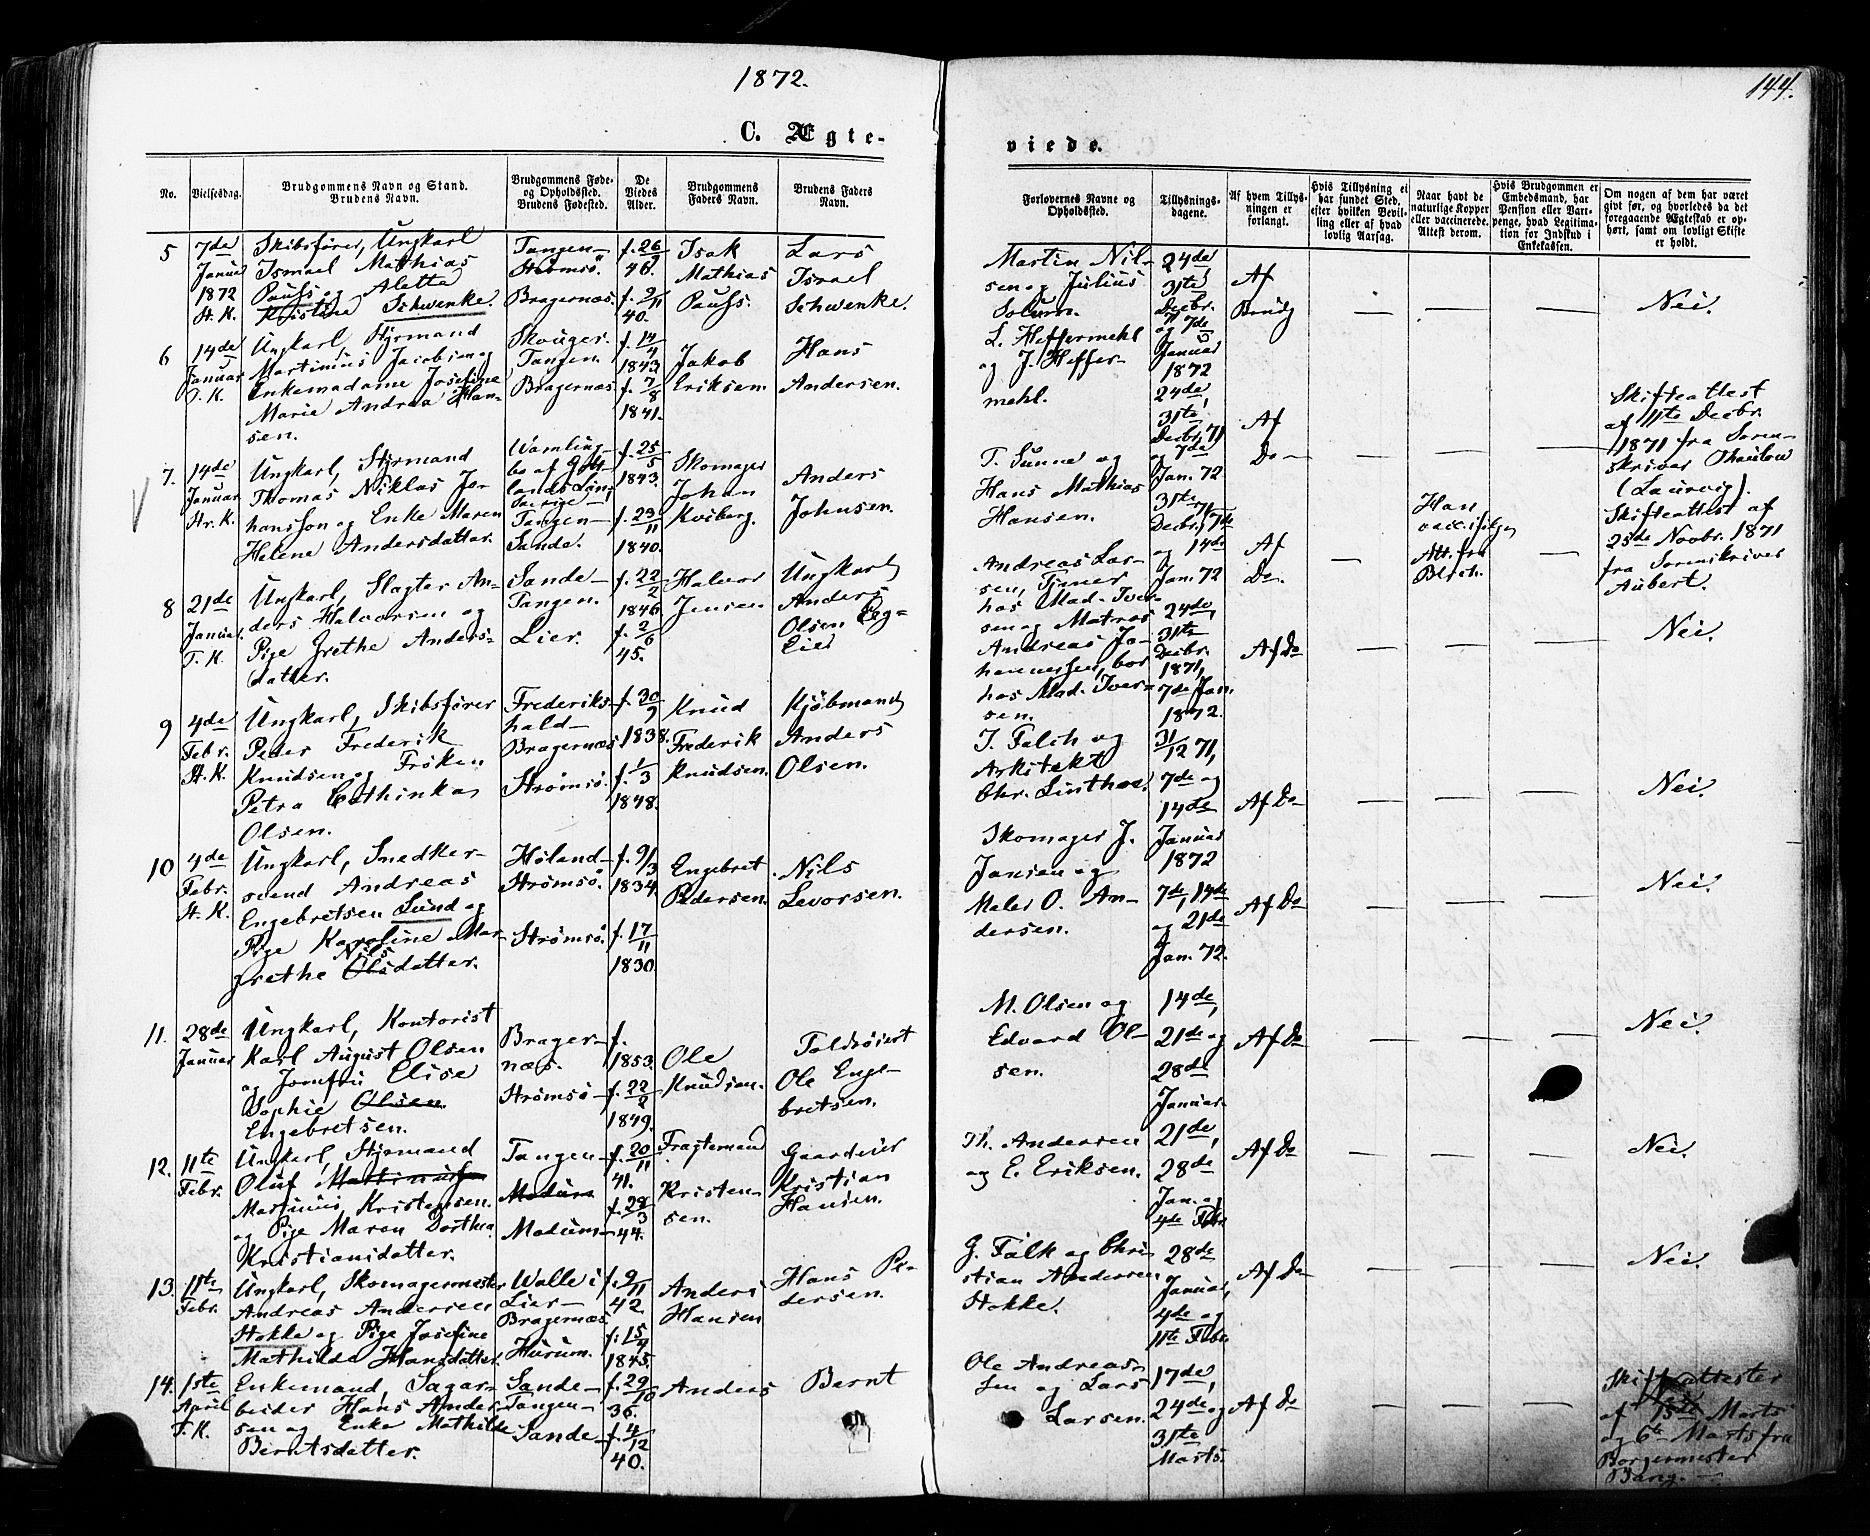 1872.
144.
C. Ægte-
viede.
No.
Vielsesdag.
Brudgommens Navn og Stand.
Brudens Navn.
Brudgommens Føde-
og Opholdssted.
Brudens Fødested.
De
Viedes
Alder.
Brudgommens
Faders Navn.
Brudens Faders
Navn.
Forlovernes Navne og
Opholdssted.
Tillysnings-
dagene.
Af hvem Tillys-
ningen er
forlangt.
Hvis Tillysning ei
har fundet Sted,
efter hvilken Bevil-
ling eller af hvad
lovlig Aarsag.
Naar havt de
naturlige Kopper
eller vaccinerede.
Attest derom.
Hvis Brudgommen er
Embedsmand, har
Pension eller Vart-
penge, hvad Legitima-
tion for Indskud i
Enkekassen.
Om nogen af dem har været
givt før, og hvorledes da det
foregaaende Ægteskab er op-
hørt, samt om lovligt Skifte
er holdt.
5
7de
Januar
1872
St. K.
Skibsfører, Ungkarl
Ismael Mathias
Pauss og Aletta
Kristine Schwenke.
Tangen-
Strømsö
Bragernæs.
f. 26/9
46.
f. 2/11
40.
Isak
Mathias
Pauss.
Lars
Israel
Schwenke.
Martin Nil-
sen og Julius
Solum.
24de,
31te
Decbr. 71
og 7de
Januar
1872
Af
Brudg
— — —
Nei.
6
14de
Januar
T. K.
Ungkarl, Styrmand
Martinius Jacobsen og
Enkemadame Josefine
Marie Andrea Han-
sen.
Skouger.
Tangen.
Bragernæs.
f. 14/4
1843
f. 7/8
1841.
Jakob
Eriksen.
Hans
Andersen.
L. Heffermehl
og J. Heffer-
mehl.
24de
31te,
Decbr, 71
og 7de
Jan. 72
Af
Do —
— — —
Skifteattest
af 11te Decbr.
1871 fra Soren-
skriver Thaulow
(Laurvig).
7.
14de
Januar
Str. K.
Ungkarl, Styrmand
Thomas Niklas Jo-
hansson og Enke Maren
Helene Andersdatter.
Wamling-
bo af
lands Län,
Sverige —
Tangen —
Sande.
f. 25/5
1843.
f. 23/11
1840.
Skomager
Johan
Kviberg.
Anders
Johnsen.
T. Sunne og
Hans Mathias
Hansen.
31te
Decbr. 71, 7de
og 14de
Jan. 72
Af
Do.
—
Han
Att. fra
—
Skifteattest af
25de Novbr. 1871
fra Sorenskriver
Aubert.
8
21de
Januar.
T. K.
Ungkarl, Slagter An-
ders Halvorsen og
Pige Grethe Anders-
datter.
Sande —
Tangen.
Lier.
f. 22/2
1846.
f. 2/6
45.
Halvor
Jensen
Ungkarl
Anders
Olsen Eeg-
Eier
Andreas Lar-
sen, Tjener
hos Mad. Iver-
sen og Matros
Andreas Jo-
hannessen, bor
hos Mad. Iver-
sen.
24de,
31te
Decbr.
1871,
7de Jan.
1872.
Af Do
— — —
Nei.
9
4de
Febr.
St. K.
Ungkarl, Skibsfører
Peter Frederik
Knudsen og Frøken
Petra Cathinka
Olsen.
Frederiks-
hald —
Bragernæs
Strømsö.
f. 30/9
1838.
f. 1/3
1848.
Knud
Frederik
Knudsen.
Kjöbmand
Anders
Olsen.
J. Falch og
Arkitekt
Chr. Linthoe.
31/12 71,
7de og
14de
Januar
1872
Af Do
— — —
Nei.
10
4de
Febr.
St. K.
Ungkarl, Snedker-
svend Andreas
Engebretsen Lund og
Pige Karoline Mar-
Nils
grethe Olsdatter.
Höland —
Strömsö.
Strömsö.
f. 9/3
1834.
f. 17/11
1830.
Engebret
Pedersen.
Nils
Levorsen.
Skomager J.
Jansen og
Maler O. An-
dersen.
7de, 14de
og 21de
Jan. 72.
Af Do
— — —
Nei.
11.
28de
Januar
Ungkarl, Kontorist
Karl August Olsen
og Jomfru Elise
Sophie Olsen
Engebretsen.
Brager-
næs.
Strømsö —
f.
1853.
f. 22/2
1849.
Ole
Knudsen.
Toldröiert
Ole Enge-
bretsen.
M. Olsen og
Edvard Ol-
sen.
14de,
21de og
28de
Januar.
Af Do
— — —
Nei.
12.
11te
Febr.
Ungkarl, Styrmand
Oluf
Martinius Kristensen
og Pige Maren Dorthea
Kristiansdatter.
Tangen —
Modum
Modum —
f. 20/11
41.
f. 28/3
44.
Fragtemand
Kristen-
sen.
Gaardeier
Kristian
Hansen.
Th. Andersen
og E. Eriksen.
21de,
28de
Jan. og
4de Febr.
Af Do
— — —
Nei.
13.
11te
Febr.
Ungkarl, Skomagermester
Andreas Andersen
Stokke og Pige Josefine
Mathilde Hansdatter.
Walle i
Lier —
Bragernæs
Hurum.
f. 9/11
42.
f. 15/4
1845.
Anders
Hansen
Hans Pe-
dersen.
G. Falk og Chri-
stian Andersen
Stokke.
28de
Januar,
4de og
11te Febr.
Af Do
— — —
Nei.
14.
1ste
April
T. K.
Enkemand, Sagar-
beider Hans Ander-
sen og Enke Mathilde
Berntsdatter.
Sande —
Tangen —
Sande —
f. 29/10
36.
f. 4/12
40.
Anders
Bernt
Ole Andreas-
sen og Lars
Larsen.
17de,
24de og
31te
Marts.
Af Do
— — —
Skifteattester
af 15de Marts
og 6te Marts fra
Borgermester
Bang. —